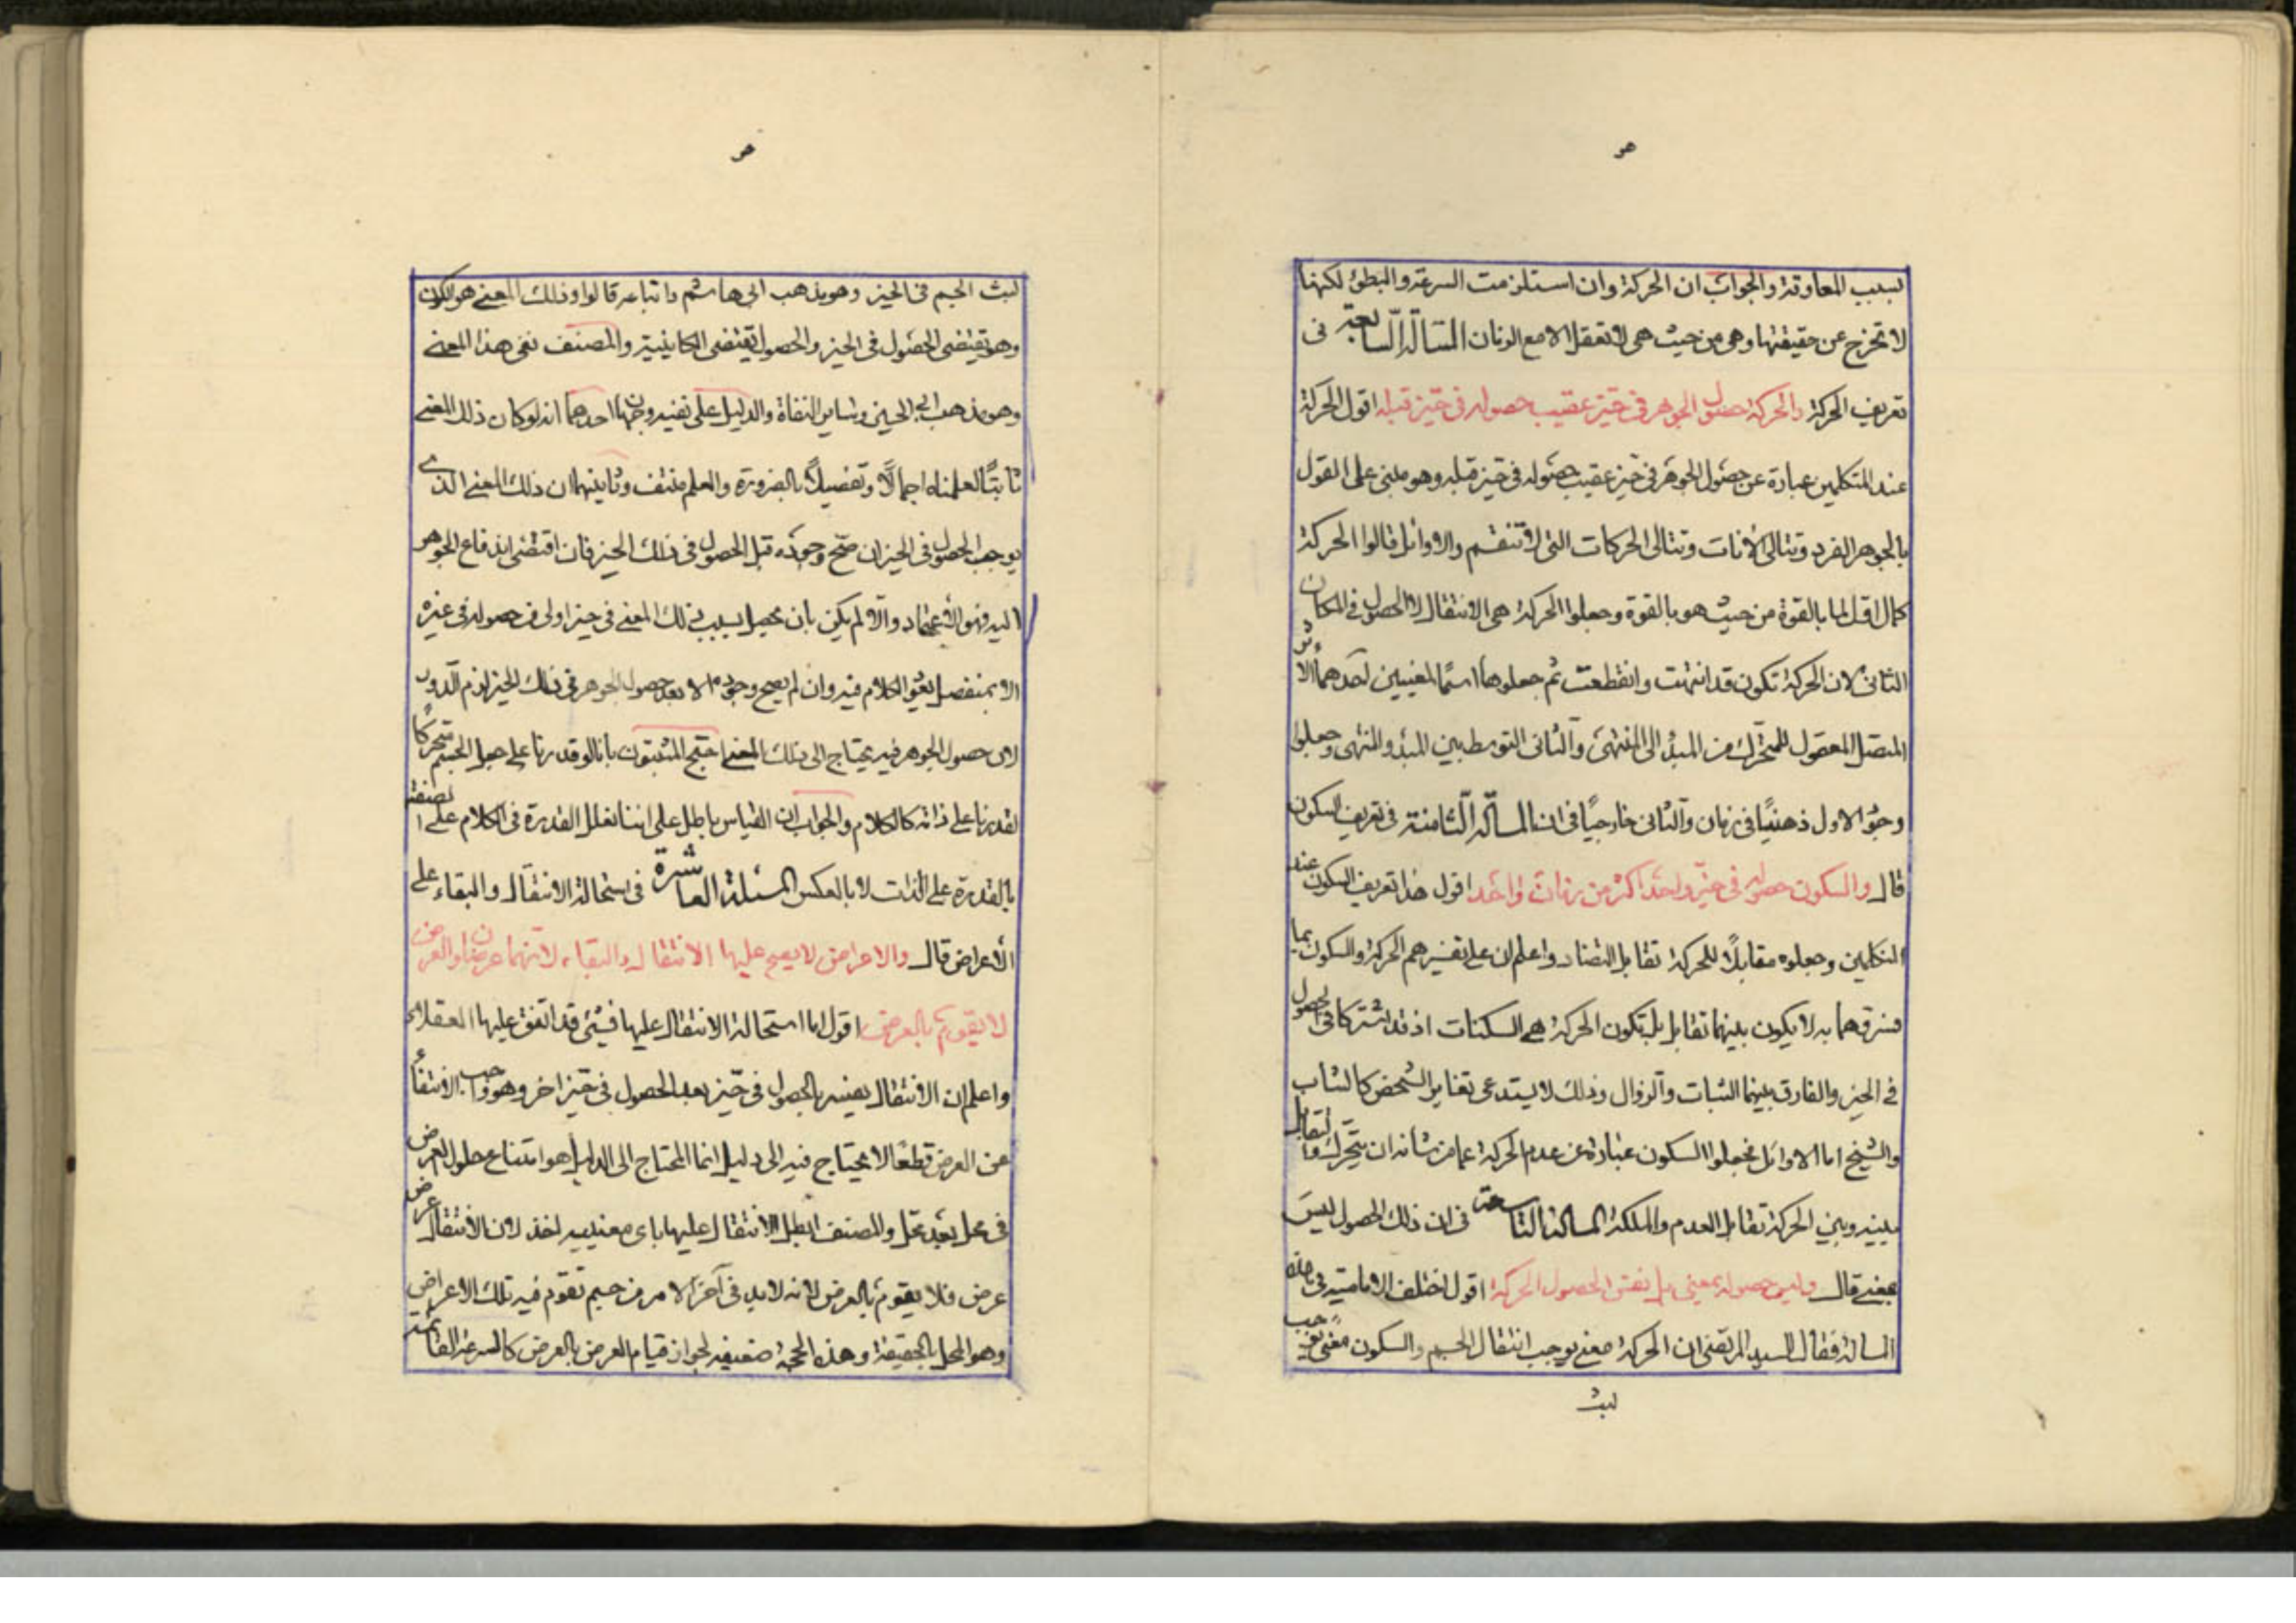 لسبب المعاوقة والجواب ان الحركة وان استلزمت السرعة والبطؤ لكنها
لا تخرج عن حقيقتها وهي من حيث هي لا تعقل الا مع الزمان المسألة السابعة فى
تعريف الحركة والحركة حصول الجوهر فى حيز عقيب حصوله فى حيز قبله اقول الحركة
عند المتكلمين عبارة عن حصول الجوهر فى حيز عقيب حصوله فى حيز قبله وهو مبنى على القول
بالجوهر الفرد وتتالى الانات وتتالى الحركات التى لا تنقسم والاوائل قالوا الحركة
كمال اول لما بالقوة من حيث هو بالقوة وجعلوا الحركة هى الانتقال لا الحصول فى المكان
الثانى لان الحركة تكون قد انتهت وانقطعت ثم جعلوها اسمًا لمعنيين احدهما الا
المتصل المعقول للمتحرك من المبدأ الى المنتهى والثانى التوسط بين المبدء والمنتهى وجعلوا
وجود الاول ذهنيًا فى زمان والثانى خارجيًا فى ان المسألة الثامنة فى تعريف السكون
قال والسكون حصوله فى حيز واحد اكثر من زمان واحد اقول هذا تعريف السكون عند
المتكلمين وجعلوه مقابلًا للحركة تقابل التضاد واعلم ان على تفسيرهم الحركة والسكون بما
فسروهما به لا يكون بينهما تقابل بل تكون الحركة هى السكنات اذ قد اشتركا فى الحصول
فى الحيز والفارق بينهما الثبات والزوال وذلك لا يستدعى تغاير الشخص كالشاب
والشيخ اما الاوائل فجعلوا السكون عبارة عن عدم الحركة عما من شأنه ان يتحرك والتقابل
بينه وبين الحركة تقابل العدم والملكة المسألة التاسعة فى ان ذلك الحصول ليس
بمعنى قال وليس حصوله بمعنى بل نفس الحصول الحركة اقول اختلف الامامية فى هذه
المسألة فقال السيد المرتضى ان الحركة معنى يوجب انتقال الجسم والسكون معنى يوجب
لبث
لبث الجسم فى الحيز وهو مذهب ابى هاشم واتباعه قالوا وذلك المعنى هو الكون
وهو يقتضى الحصول فى الحيز والحصول يقتضى الكاينية والمصنف نفى هذا المعنى
وهو مذهب ابى الحسين وساير النفاة والدليل على نفيه وجهان احدهما انه لو كان ذلك المعنى
ثابتًا لعلمناه اجمالًا وتفصيلًا بالضرورة والعلم منتف وثانيهما ان ذلك المعنى الذى
يوجب الحصول فى الحيز ان صح وجوده قبل الحصول فى ذلك الحيز فان اقتضى اندفاع الجوهر
اليه فهو الاعتماد والا لم يكن بان يحصل بسبب ذلك المعنى فى حيز اولى من حصوله فى غيره
الا بمنفصل يعود الكلام فيه وان لم يصح وجوده الا بعد حصول الجوهر فى ذلك الحيز لزم الدور
لان حصول الجوهر فيه يحتاج الى ذلك المعنى احتج المثبتون بانا لو قدرنا على جعل الجسم متحركًا
لقدرنا على ذاته كالكلام والجواب ان القياس باطل على اننا نعلل القدرة فى الكلام على صفته
بالقدرة على الذات لا بالعكس المسئلة العاشرة فى استحالة الانتقال والبقاء على
الأعراض قال والاعراض لا يصح عليها الانتقال والبقاء لانهما عرضان والعرض
لا يقوم بالعرض اقول اما استحالة الانتقال عليها فشئ قد اتفق عليها العقلاء
واعلم ان الانتقال يفسر بالحصول فى حيز بعد الحصول فى حيز اخر وهو واجب الانتفاء
عن العرض قطعًا لا يحتاج فيه الى دليل انما المحتاج الى الدليل هو امتناع حلول العرض
فى محل بعد محل والمصنف ابطل الانتقال عليها باى معنييه اخذ لان الانتقال عرض
عرض فلا يقوم بالعرض لانه لابد فى آخر الامر من جسم تقوم فيه تلك الاعراض
وهو المحل بالحقيقة وهذه الحجة ضعيفة لجواز قيام العرض بالعرض كالسرعة القائمة